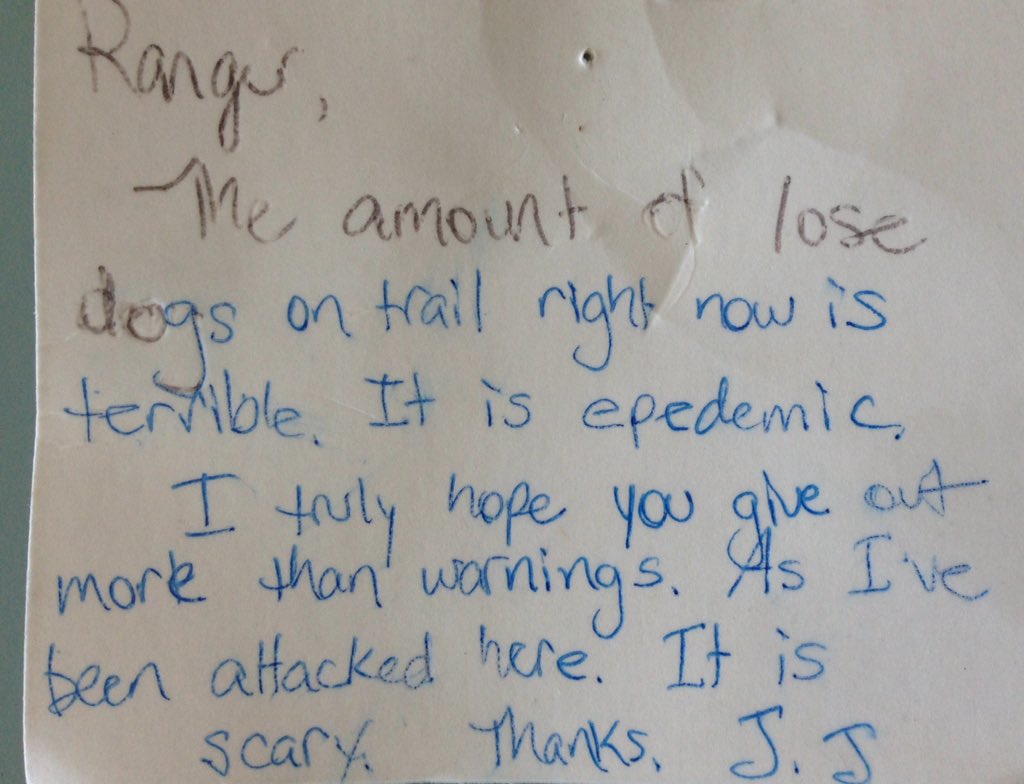 Ranger,
The amount of lose
dogs on trail right now is
terrible. It is epedemic.
I truly hope you give out
more than warnings. As I've
been attacked here. It is
scary. Thanks. J.J